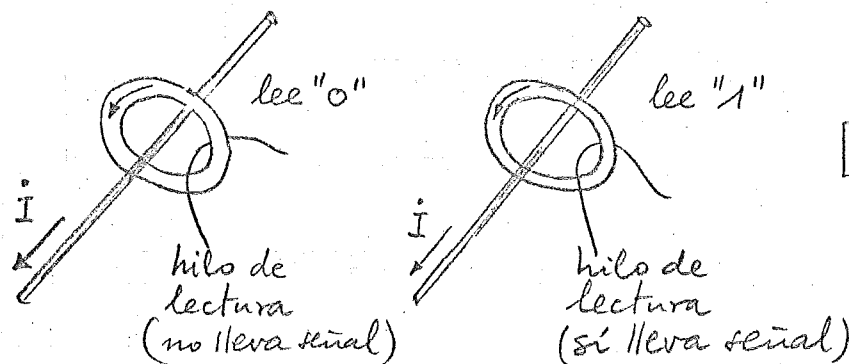 lee "0"
lee "1"
İ
İ
hilo de
lectura
(no lleva señal)
hilo de
lectura
(sí lleva señal)